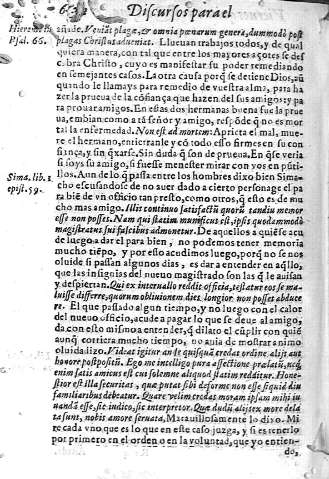 632 Discursos para el
Hieron. in añade. Veniat plaga, & omnia pœnarum genera, dummodo post
Psal. 66. plagas Christus adueniat. Lluevan trabajos todos, y de qual
quiera manera, con tal que entre los mayores açotes se des
cubra Christo, cuyo es manifestar su poder remediando
en semejantes casos. La otra causa porq̃ se detiene Dios, aũ
quando le llamays para remedio de vuestra alma, para ha
zer la prueua de la cõfiança que hazen del sus amigos: y pa
ra prouar amigos. En estas dos hermanas buena fue la prue
ua, embian como a tã señor y amigo, respõde q̃ no es mor
tal la enfermedad. Non est ad mortem: Aprieta el mal, mue
re el hermano, entierranle y cõ todo esso firmes en su con
fiança, y sin q̃xarse. Sin duda q̃ son de prueua. En q̃ se veria
si soys su amigo, si fuesse menester mirar con vos en pũti-
Sima. lib. 1. llos. Aun de lo q̃ passa entre hombres dixo bien Sima-
epist. 59. cho escusandose de no auer dado a cierto personage el pa
ra biẽ de vn oficio tan presto, como otros, q̃ esto es de mu
cho mas amigo. Illic continuo satisfactũ quorũ tandiu memor
esse non posses. Nam qui statim munificus est, ipse quodammodo
magistratus sui fascibus admonetur. De aquellos a quiẽ se acu
de luego a dar el para bien, no podemos tener memoria
mucho tiẽpo, y por esso acudimos luego, porq̃ no se nos
oluide si passan algunos dias, es dar a entender en aq̃llo,
que las insignias del nueuo magistrado son las q̃ le auisan
y despiertan. Qui ex interuallo reddit officia, testatur eos se ma-
luisse differre, quorum obliuionem dies longior non posses abduce
re. El que passado algun tiempo, y no luego con el calor
del nueuo officio, acude a pagar lo que se deue al amigo,
da con esto mismo a entender, q̃ dilato el cũplir con quiẽ
aunq̃ corriera mucho tiempo, no auia de mostrar animo
oluidadizo. Videat igitur an te quisquã credas ordine. alijs aut
honore postpositis. Ego me intelligo pura affectione prælatũ, neq̃
enim satis amicus est cui solemne aliquod statim redditur. Hone-
stior est illa securitas, quæ putat sibi deforme non esse siquid diu
familiaribus debeatur. Quare velim credas moram ipsam mihi iu
uandã esse, sic iudico, sic interpretor. Quæ dudũ alijs ex more dela
ta sunt, nobis amore seruata, Marauillosamente lo dixo. Mi
re cada vno que es lo que en este caso juzga, y si es tenerlo
por primero en el orden o en la voluntad, que yo entien-
do,